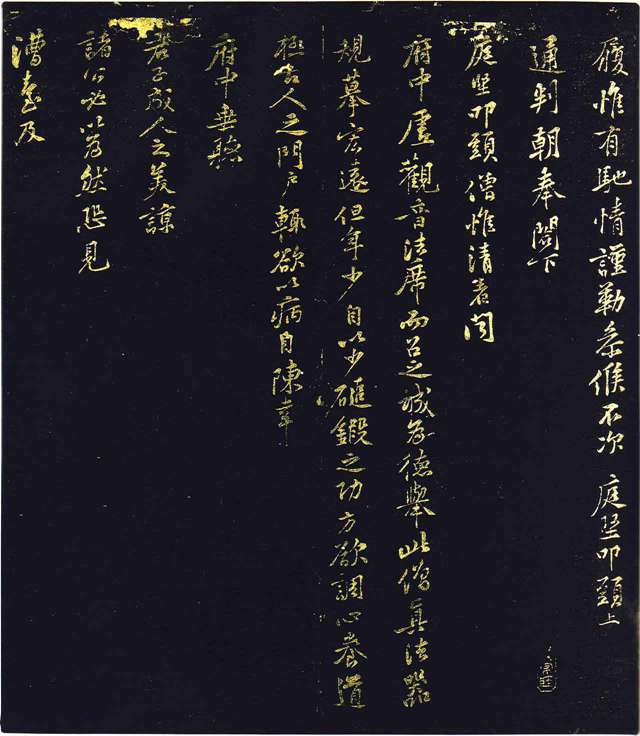 履惟有馳情謹勒參候不次 庭堅叩頭上
通判朝奉閣下
庭堅叩頭僧惟清者聞
府中虛觀音法席而召之誠為德舉此僧真法器
規摹宏遠但年少自以少磓鍛之功方欲調心養道
極害人之門戶輒欲以病自陳幸
府中垂聽
君子成人之美諒
諸公必以為然恐見
漕臺及